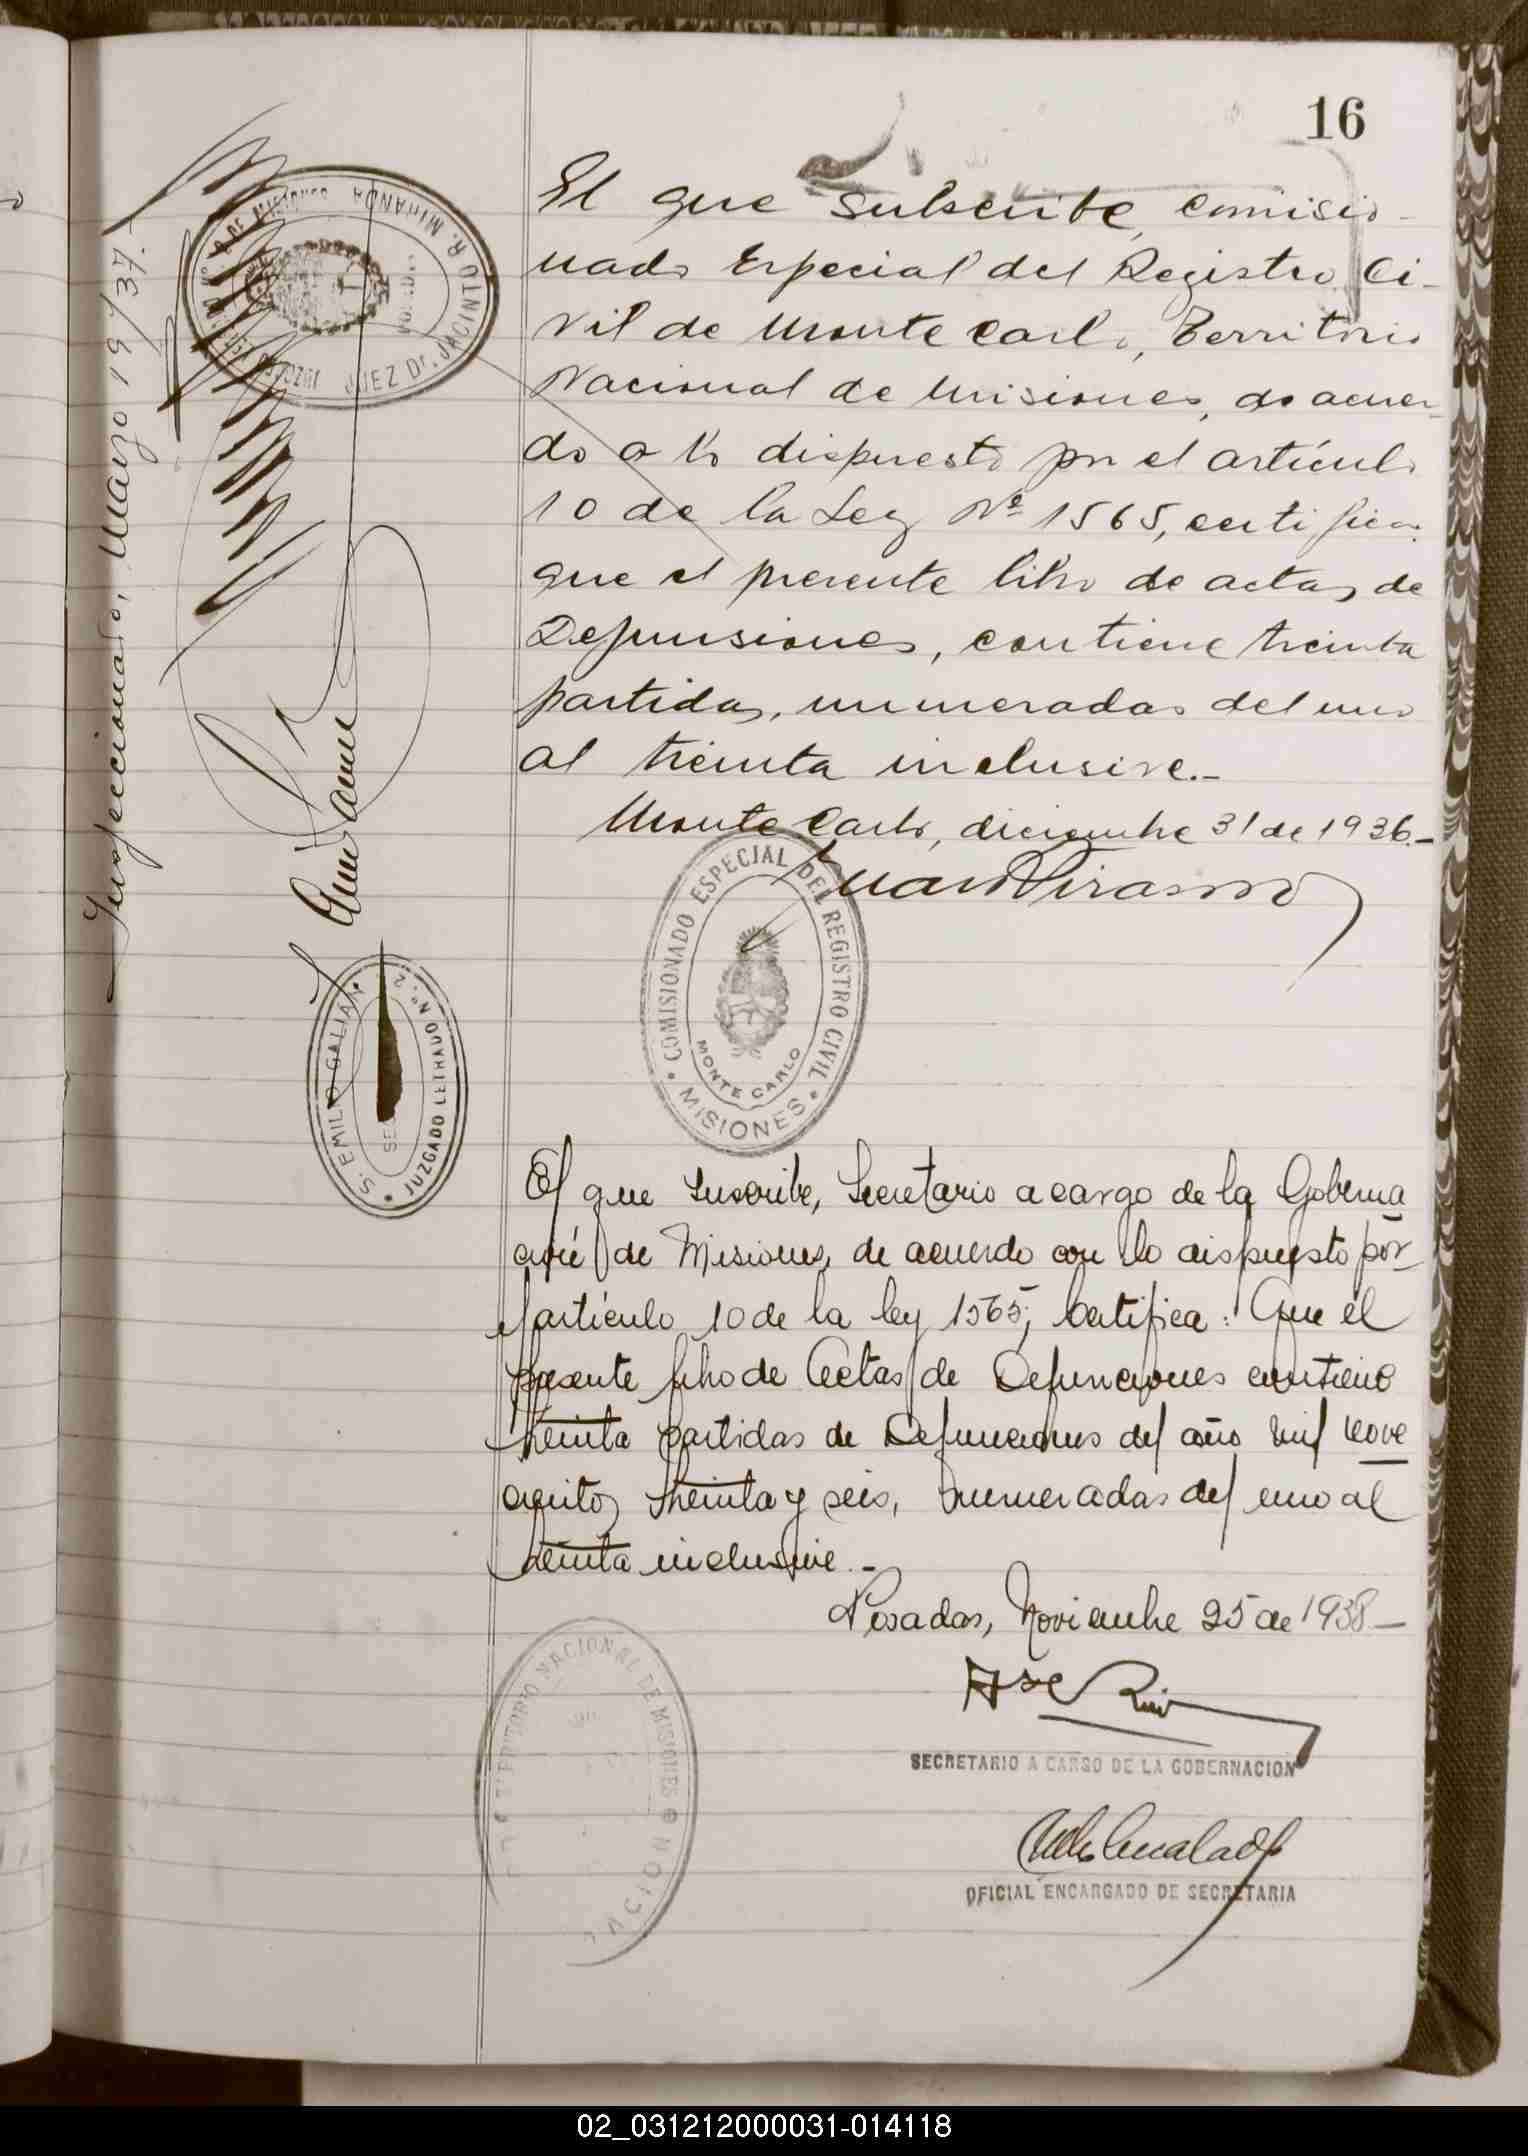 16
El que subscribe, comisio-
nado Especial del Registro Ci-
vil de Monte Carlo, Territorio
Nacional de Misiones, de acuer-
do a lo dispuesto por el artículo
10 de la Ley Nº 1565, certifica
que el presente libro de actas de
Defunsiones, contiene treinta
partidas, numeradas del uno
al treinta inclusive.-
Monte Carlo, diciembre 31 de 1936.-
COMISIONADO ESPECIAL DEL REGISTRO CIVIL
MONTE CARLO
• MISIONES •
El que suscribe, Secretario a cargo de la Goberna
ción de Misiones, de acuerdo con lo dispuesto por
el artículo 10 de la ley 1565, Certifica: Que el
presente libro de Actas de Defunciones contiene
treinta partidas de Defunciones del año mil nove
cientos treinta y seis, numeradas del uno al
treinta inclusive.-
Posadas, Noviembre 25 de 1938-
TERRITORIO NACIONAL DE MISIONES
SECRETARIO A CARGO DE LA GOBERNACION
OFICIAL ENCARGADO DE SECRETARIA
Inspeccionado, Marzo 19/37.-
JUEZ Dr. JACINTO R. MIRANDA
S. EMILIO GALIAN
JUZGADO LETRADO Nº. 2
02_031212000031-014118